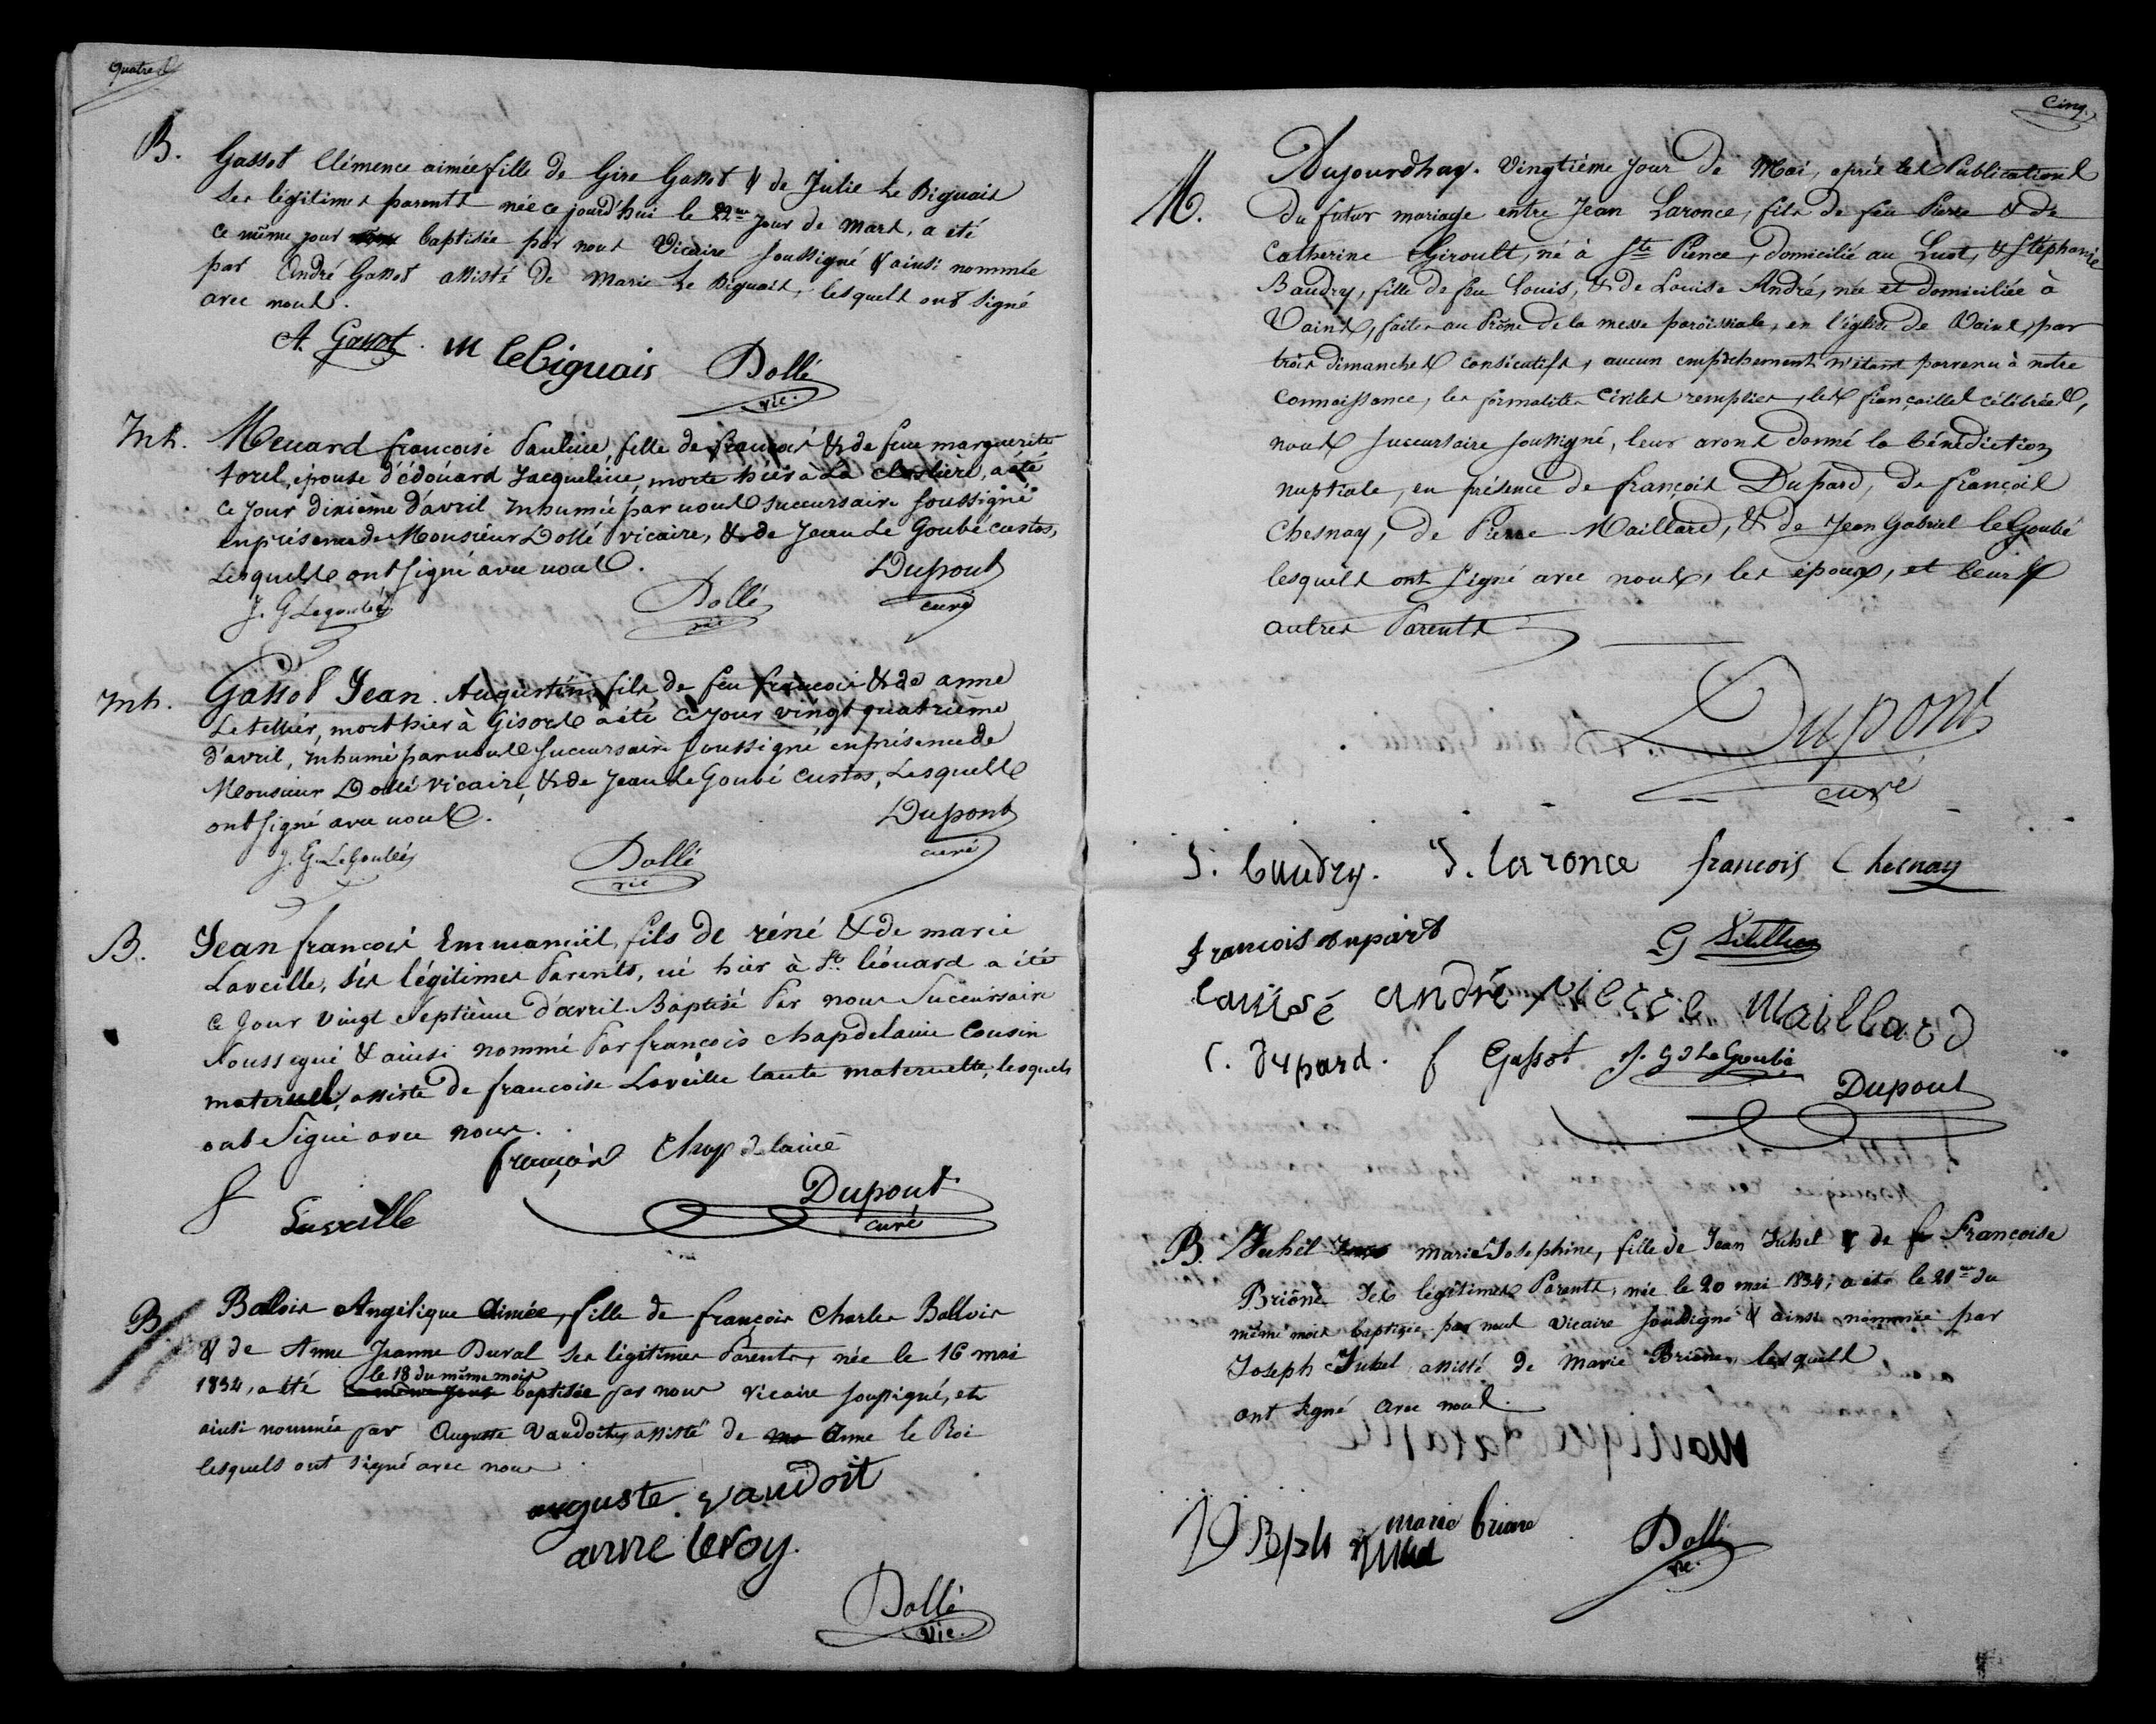 quatre
B.
Gassot Clémence aimée fille de Gire Gassot & de Julie Le Biguais
Ses légitimes parents née ce jourd'hui le 22me jour de mars, a été
ce même jour baptisée par nous Vicaire soussigné & ainsi nommée
par André Gassot assisté de Marie Le Biguais, lesquels ont signé
avec nous.
A. Gassot. m lebiguais Dollé
vic.
Inh.
Menard françoise Pauline, fille de françois & de feue marguerite
torel, épouse d'édouard Jacqueline, morte hier à La, a été
ce jour dixième d'avril inhumée par nous succursaire soussigné
en présence de Monsieur Dollé vicaire, & de Jean Le Goubé custos,
Lesquels ont signé avec nous.
J. G Legoubé Dollé Dupont
vic curé
Inh.
Gassot Jean Augustin, fils de feu françois & de anne
Letellier, mort hier à Gisors a été ce jour vingt quatrième
d'avril, inhumé par nous succursaire soussigné en présence de
Monsieur Dollé vicaire, & de Jean Le Goubé custos, Lesquels
ont signé avec nous.
J. G. LeGoubé Dollé Dupont
vic curé
B.
Jean françois Emmanuël, fils de réné & de marie
Laveille, ses légitimes Parents, né hier à St. léonard a été
ce Jour vingt septième d'avril Baptisé Par nous Succursaire
Soussigné & ainsi nommé Par françois chapdelaine Cousin
maternel, assisté de francoise Laveille tante maternelle, lesquels
ont Signé avec nous.
françois Chapdelaine
f Laveille Dupont
curé
B
Ballois Angélique Aimée, fille de françois Charles Ballois
& de Anne Jeanne Duval ses légitimes Parents, née le 16 mai
le 18 du même mois
1834, a été ce même jour baptisée par nous vicaire soussigné, et
ainsi nommée par Auguste Vaudoit, assisté de Anne le Roi
lesquels ont signé avec nous
auguste vaudoit
anne leroy.
Dollé
vic.
Cinq.
M.
Aujourdhuy. vingtième jour de Mai, après les Publications
du futur mariage entre Jean Laronce, fils de feu Pierre & de
Catherine Giroult, né à Ste Pience, domicilié au Luot, & Stéphanie
Baudry, fille de feu Louis, & de Louise André, née et domiciliée à
Vains, faites au Prône de la messe paroissiale, en l'église de Vains, par
trois dimanches consécutifs, aucun empêchement n'étant parvenu à notre
connaissance, les formalités civiles remplies, les fiançailles célébrées,
nous succursaire soussigné, leur avons donné la bénédiction
nuptiale, en présence de françois Dupard, de françois
Chesnay, de Pierre Maillard, & de Jean Gabriel le Goubé
lesquels ont signé avec nous, les époux, et leurs
autres Parents
Dupont
curé
S. baudry. J. laronce francois Chesnay
francois dupart G Letellier
louise andré pierre Maillard
C. dupard. f Gassot J. G Le Goubé
Dupont
B.
Juhel marie Josephine, fille de Jean Juhel & de Françoise
Brione Ses légitimes Parents, née le 20 mai 1834, a été le 21me du
même mois baptisée par nous vicaire soussigné & ainsi nommée par
Joseph Juhel assisté de Marie Brione, lesquels
ont signé avec nous.
marie brione
Joseph Juhel Dollé
vic.